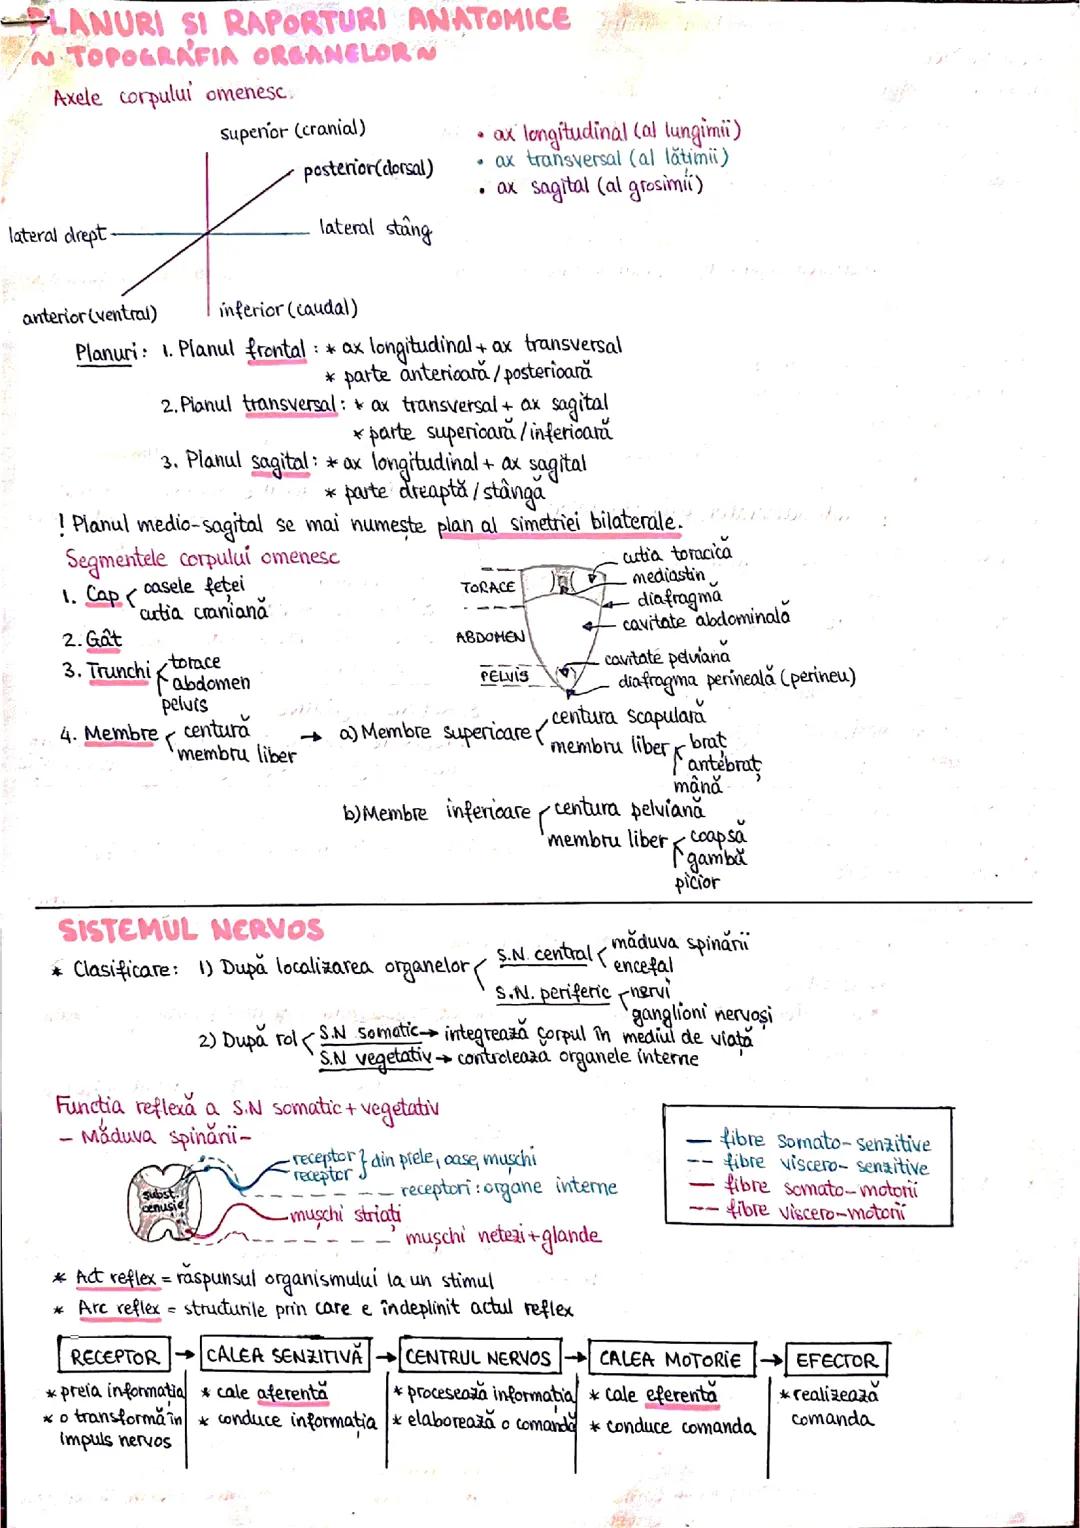 PLANURI SI RAPORTURI ANATOMICE
~ TOPOGRAFIA ORGANELOR ~
Axele corpului omenesc.
superior (cranial)
posterior (dorsal)
lateral drept
lateral stâng
anterior (ventral)
inferior (caudal)
• ax longitudinal (al lungimii)
• ax transversal (al lățimii)
• ax sagital (al grosimii)
Planuri: 1. Planul frontal : * ax longitudinal + ax transversal
* parte anterioară / posterioară
2. Planul transversal : * ax transversal + ax sagital
* parte superioară / inferioară
3. Planul sagital : * ax longitudinal + ax sagital
* parte dreaptă / stângă
! Planul medio-sagital se mai numește plan al simetriei bilaterale.
Segmentele corpului omenesc
1. Cap
oasele feței
cutia craniană
2. Gât
3. Trunchi
torace
abdomen
pelvis
4. Membre
centură
membru liber
TORACE
ABDOMEN
PELVIS
cutia toracică
mediastin
diafragmă
cavitate abdominală
cavitate pelviană
diafragma perineală (perineu)
→ a) Membre superioare
centura scapulară
membru liber
braț
antebraț
mână
b) Membre inferioare
centura pelviană
membru liber
coapsă
gambă
picior
SISTEMUL NERVOS
* Clasificare: 1) După localizarea organelor
S.N. central
măduva spinării
encefal
S.N. periferic
nervi
ganglioni nervoși
2) După rol
S.N somatic → integrează corpul în mediul de viață
S.N vegetativ → controlează organele interne
Funcția reflexă a S.N somatic + vegetativ
- Măduva spinării -
subst.
cenușie
receptor } din piele, oase, mușchi
receptor
receptori : organe interne
mușchi striați
mușchi netezi + glande
— fibre somato-senzitive
-- fibre viscero-senzitive
— fibre somato-motorii
-- fibre viscero-motorii
* Act reflex = răspunsul organismului la un stimul
* Arc reflex = structurile prin care e îndeplinit actul reflex
RECEPTOR → CALEA SENZITIVĂ → CENTRUL NERVOS → CALEA MOTORIE → EFECTOR
* preia informația
* o transformă în
impuls nervos
* cale aferentă
* conduce informația
* procesează informația
* elaborează o comandă
* cale eferentă
* conduce comanda
* realizează
comanda